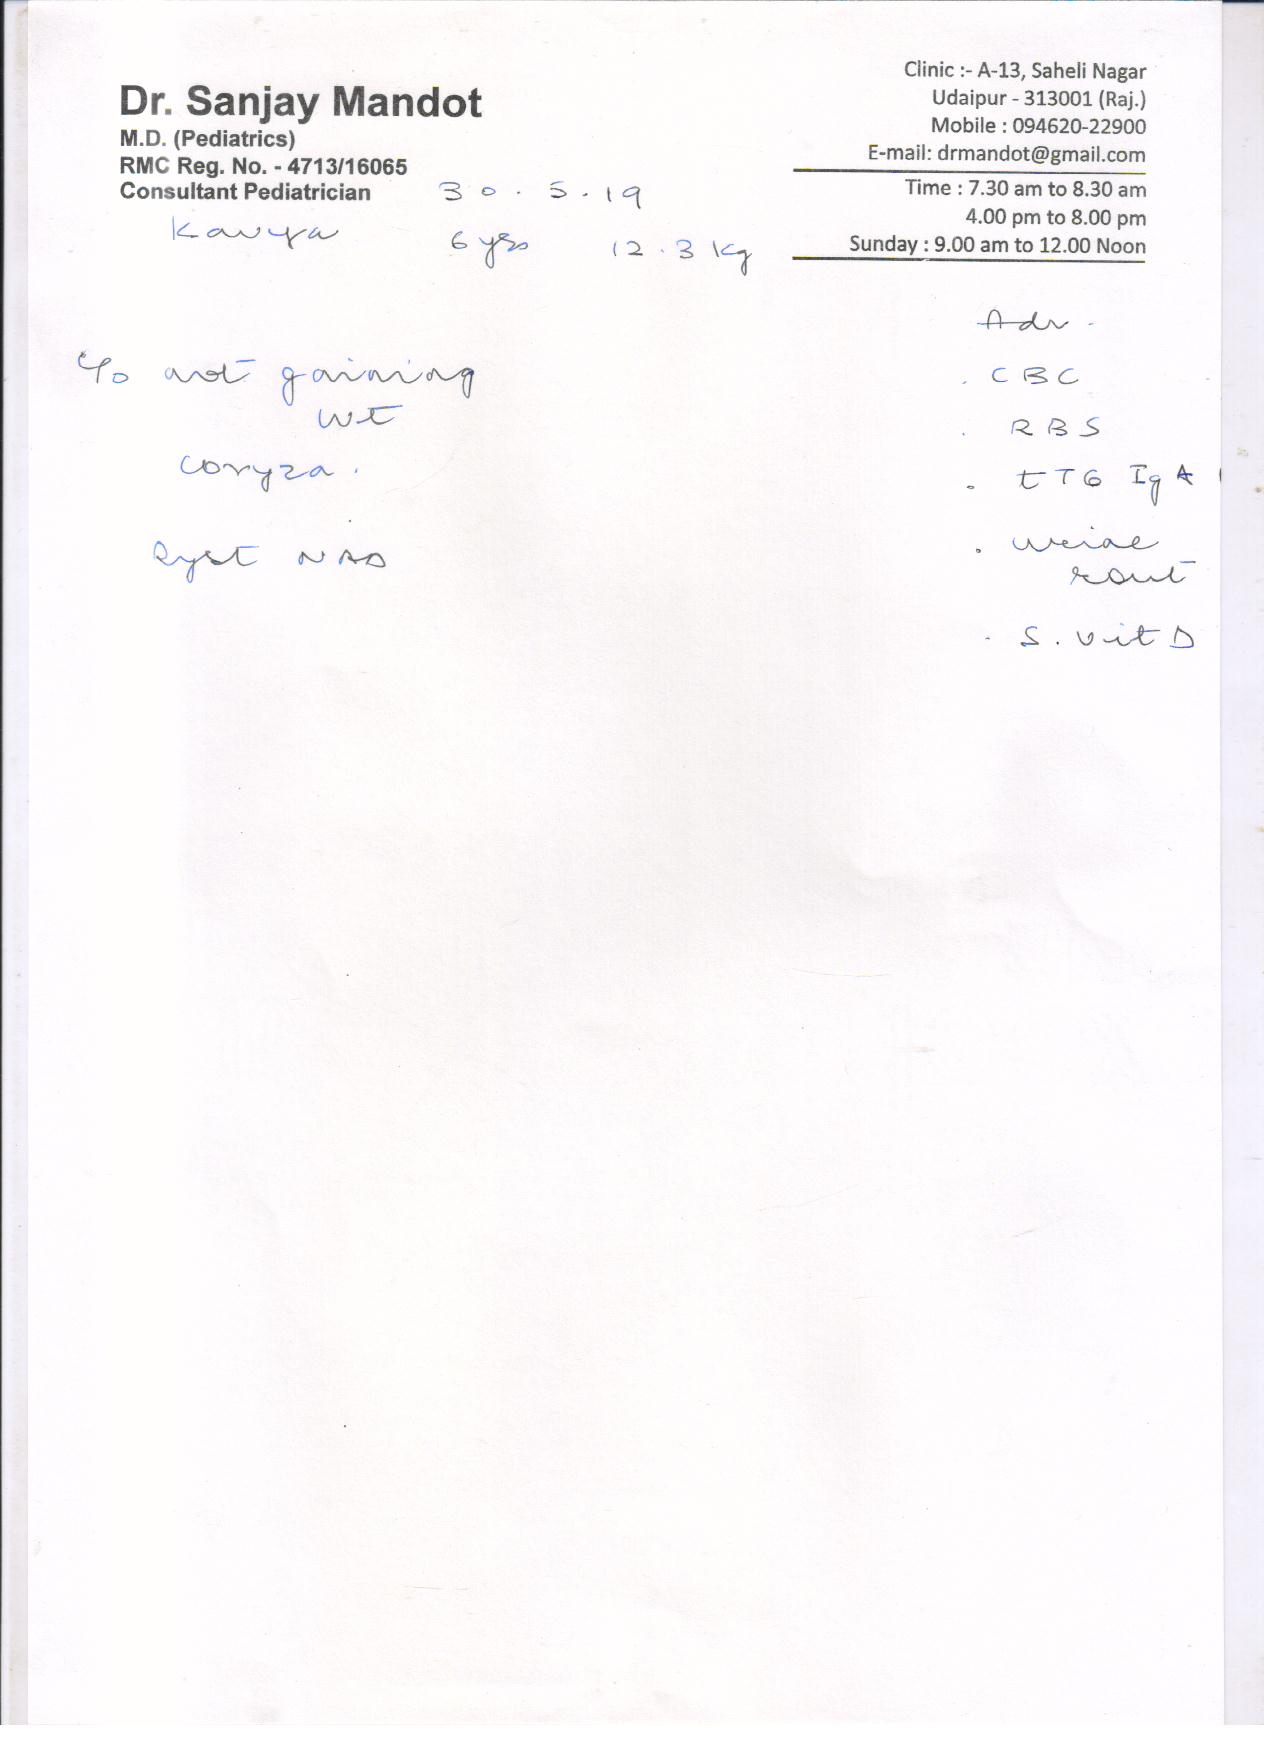 Dr. Sanjay Mandot
M.D. (Pediatrics)
RMC Reg. No. - 4713/16065
Consultant Pediatrician
Clinic :- A-13, Saheli Nagar
Udaipur - 313001 (Raj.)
Mobile : 094620-22900
E-mail: drmandot@gmail.com
Time : 7.30 am to 8.30 am
4.00 pm to 8.00 pm
Sunday : 9.00 am to 12.00 Noon
30.5.19
Kavya 6 yrs 12.3 kg
C/o not gaining
wt
coryza.
Syst NAD
Adv -
. CBC
. RBS
. tTG IgA
. urine
rout
. S. Vit D